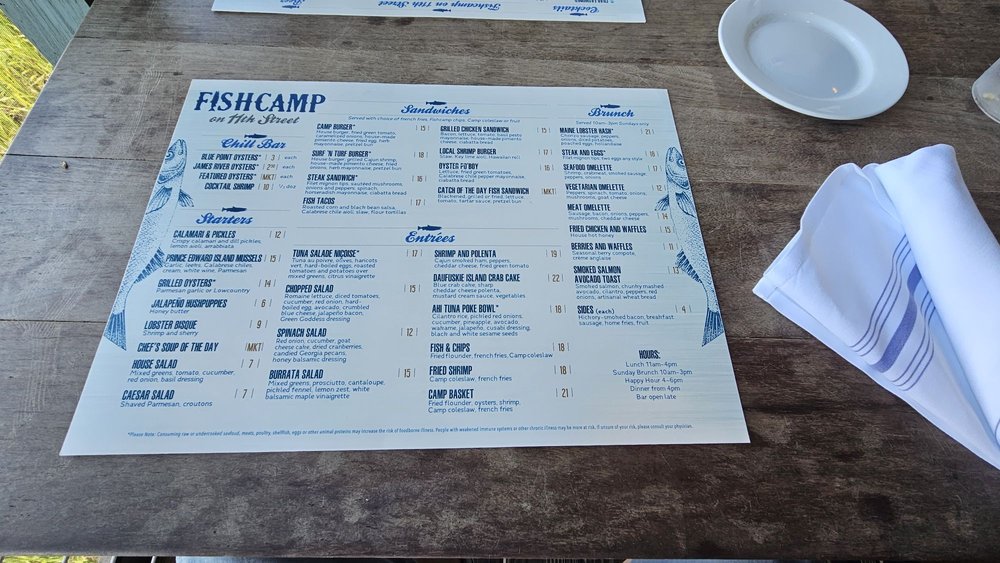 Beer
Fishcamp on 11th Street
Cocktails
FISHCAMP
on 11th Street
Chill Bar
BLUE POINT OYSTERS* | 3 | each
JAMES RIVER OYSTERS* | 2⁵⁰ | each
FEATURED OYSTERS* |MKT| each
COCKTAIL SHRIMP | 10 | ½ doz
Starters
CALAMARI & PICKLES | 12 |
Crispy calamari and dill pickles,
lemon aioli, arrabbiata
PRINCE EDWARD ISLAND MUSSELS | 15 |
Garlic, leeks, Calabrese chilies,
cream, white wine, Parmesan
GRILLED OYSTERS* | 14 |
Parmesan garlic or Lowcountry
JALAPEÑO HUSHPUPPIES | 6 |
Honey butter
LOBSTER BISQUE | 9 |
Shrimp and sherry
CHEF'S SOUP OF THE DAY |MKT|
HOUSE SALAD | 7 |
Mixed greens, tomato, cucumber,
red onion, basil dressing
CAESAR SALAD | 7 |
Shaved Parmesan, croutons
Sandwiches
Served with choice of french fries, Fishcamp chips, Camp coleslaw or fruit
CAMP BURGER* | 15 |
House burger, fried green tomato,
caramelized onions, house-made
pimento cheese, fried egg, herb
mayonnaise, pretzel bun
SURF 'N TURF BURGER* | 18 |
House burger, grilled Cajun shrimp,
house-made pimento cheese, fried
onions, herb mayonnaise, pretzel bun
STEAK SANDWICH* | 18 |
Filet mignon tips, sautéed mushrooms,
onions and peppers, spinach,
horseradish mayonnaise, ciabatta bread
FISH TACOS | 17 |
Roasted corn and black bean salsa,
Calabrese chile aioli, slaw, flour tortillas
GRILLED CHICKEN SANDWICH | 15 |
Bacon, lettuce, tomato, basil pesto
mayonnaise, house-made pimento
cheese, ciabatta bread
LOCAL SHRIMP BURGER | 17 |
Slaw, Key lime aioli, Hawaiian roll
OYSTER PO'BOY | 18 |
Lettuce, fried green tomatoes,
Calabrese chile pepper mayonnaise,
ciabatta bread
CATCH OF THE DAY FISH SANDWICH |MKT|
Blackened, grilled or fried, lettuce,
tomato, tartar sauce, pretzel bun
Entrées
TUNA SALADE NIÇOISE* | 17 |
Tuna au poivre, olives, haricots
vert, hard-boiled eggs, roasted
tomatoes and potatoes over
mixed greens, citrus vinaigrette
CHOPPED SALAD | 15 |
Romaine lettuce, diced tomatoes,
cucumber, red onion, hard-
boiled egg, avocado, crumbled
blue cheese, jalapeño bacon,
Green Goddess dressing
SPINACH SALAD | 12 |
Red onion, cucumber, goat
cheese cake, dried cranberries,
candied Georgia pecans,
honey balsamic dressing
BURRATA SALAD | 15 |
Mixed greens, prosciutto, cantaloupe,
pickled fennel, lemon zest, white
balsamic maple vinaigrette
SHRIMP AND POLENTA | 19 |
Cajun smoked ham, peppers,
cheddar cheese, fried green tomato
DAUFUSKIE ISLAND CRAB CAKE | 22 |
Blue crab cake, sharp
cheddar cheese polenta,
mustard cream sauce, vegetables
AHI TUNA POKE BOWL* | 18 |
Cilantro rice, pickled red onions,
cucumber, pineapple, avocado,
wakame, jalapeño, cusabi dressing,
black and white sesame seeds
FISH & CHIPS | 18 |
Fried flounder, french fries, Camp coleslaw
FRIED SHRIMP | 18 |
Camp coleslaw, french fries
CAMP BASKET | 21 |
Fried flounder, oysters, shrimp,
Camp coleslaw, french fries
Brunch
Served 10am-3pm Sundays only
MAINE LOBSTER HASH* | 21 |
Chorizo sausage, peppers,
onions, diced potatoes,
poached eggs, hollandaise
STEAK AND EGGS* | 18 |
Filet mignon tips, two eggs any style
SEAFOOD OMELETTE | 17 |
Shrimp, crabmeat, smoked sausage,
peppers, onions
VEGETARIAN OMELETTE | 12 |
Peppers, spinach, tomato, onions,
mushrooms, goat cheese
MEAT OMELETTE | 14 |
Sausage, bacon, onions, peppers,
mushrooms, cheddar cheese
FRIED CHICKEN AND WAFFLES | 15 |
House hot honey
BERRIES AND WAFFLES | 11 |
Seasonal berry compote,
crème anglaise
SMOKED SALMON 13
AVOCADO TOAST
Smoked salmon, chunky mashed
avocado, cilantro, peppers, red
onions, artisanal wheat bread
SIDES (each) | 4 |
Hickory-smoked bacon, breakfast
sausage, home fries, fruit
HOURS:
Lunch 11am-4pm
Sunday Brunch 10am-3pm
Happy Hour 4-6pm
Dinner from 4pm
Bar open late
*Please Note: Consuming raw or undercooked seafood, meats, poultry, shellfish, eggs or other animal proteins may increase the risk of foodborne illness. People with weakened immune systems or other chronic illness may be more at risk. If unsure of your risk, please consult your physician.